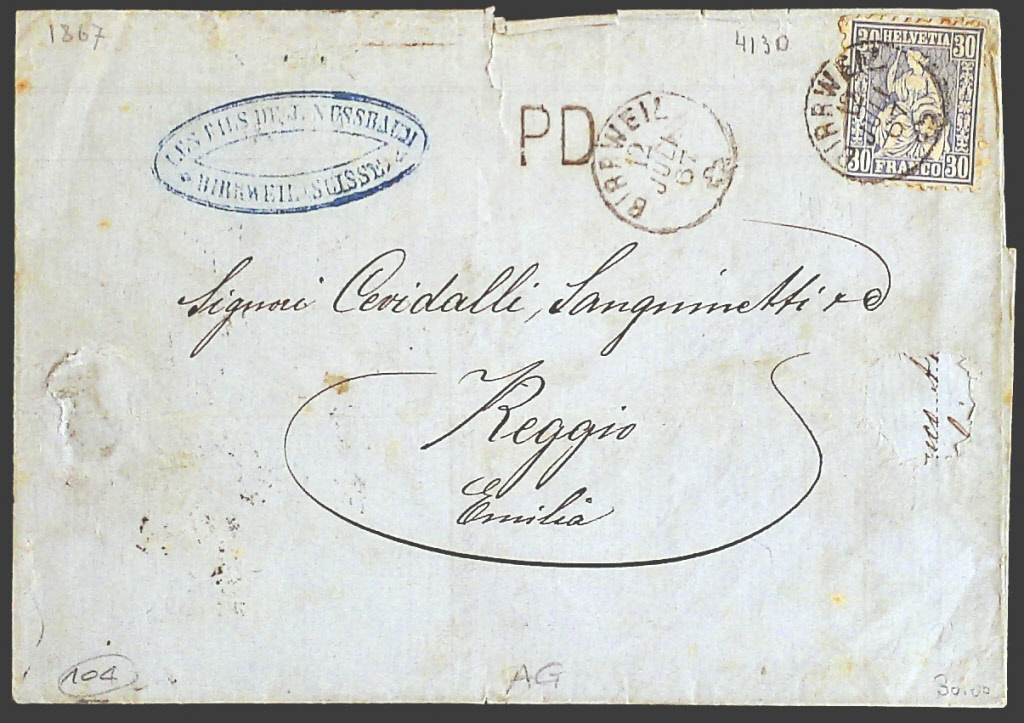 1867
4130
30 HELVETIA 30
30 FRANCO 30
BIRRWEIL
LES FILS DE J. NUSSBAUM
BIRRWEIL (SUISSE)
PD
BIRRWEIL
12
JULI
67
Signori Cevidalli, Sanguinetti & C
Reggio
Emilia
104
AG
30.00